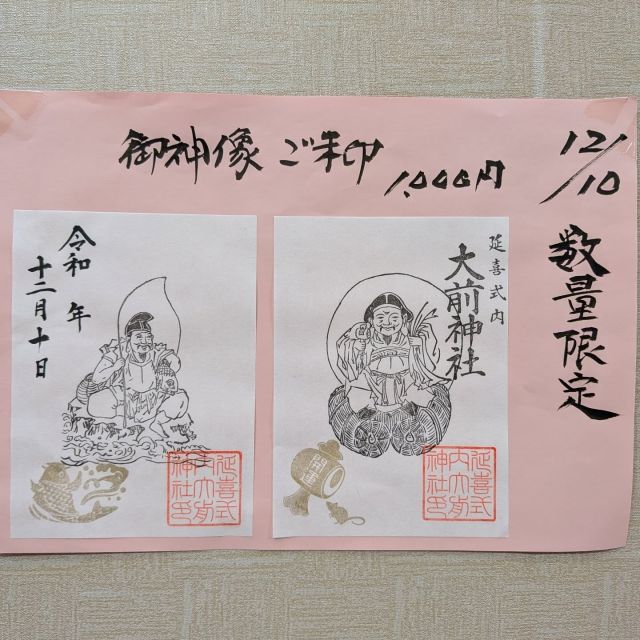 御神像 ご朱印
1,000円
12/10
数量限定
延喜式内
大前神社
開運
延喜式
内大前
神社印
令和 年
十二月十日
延喜式
内大前
神社印